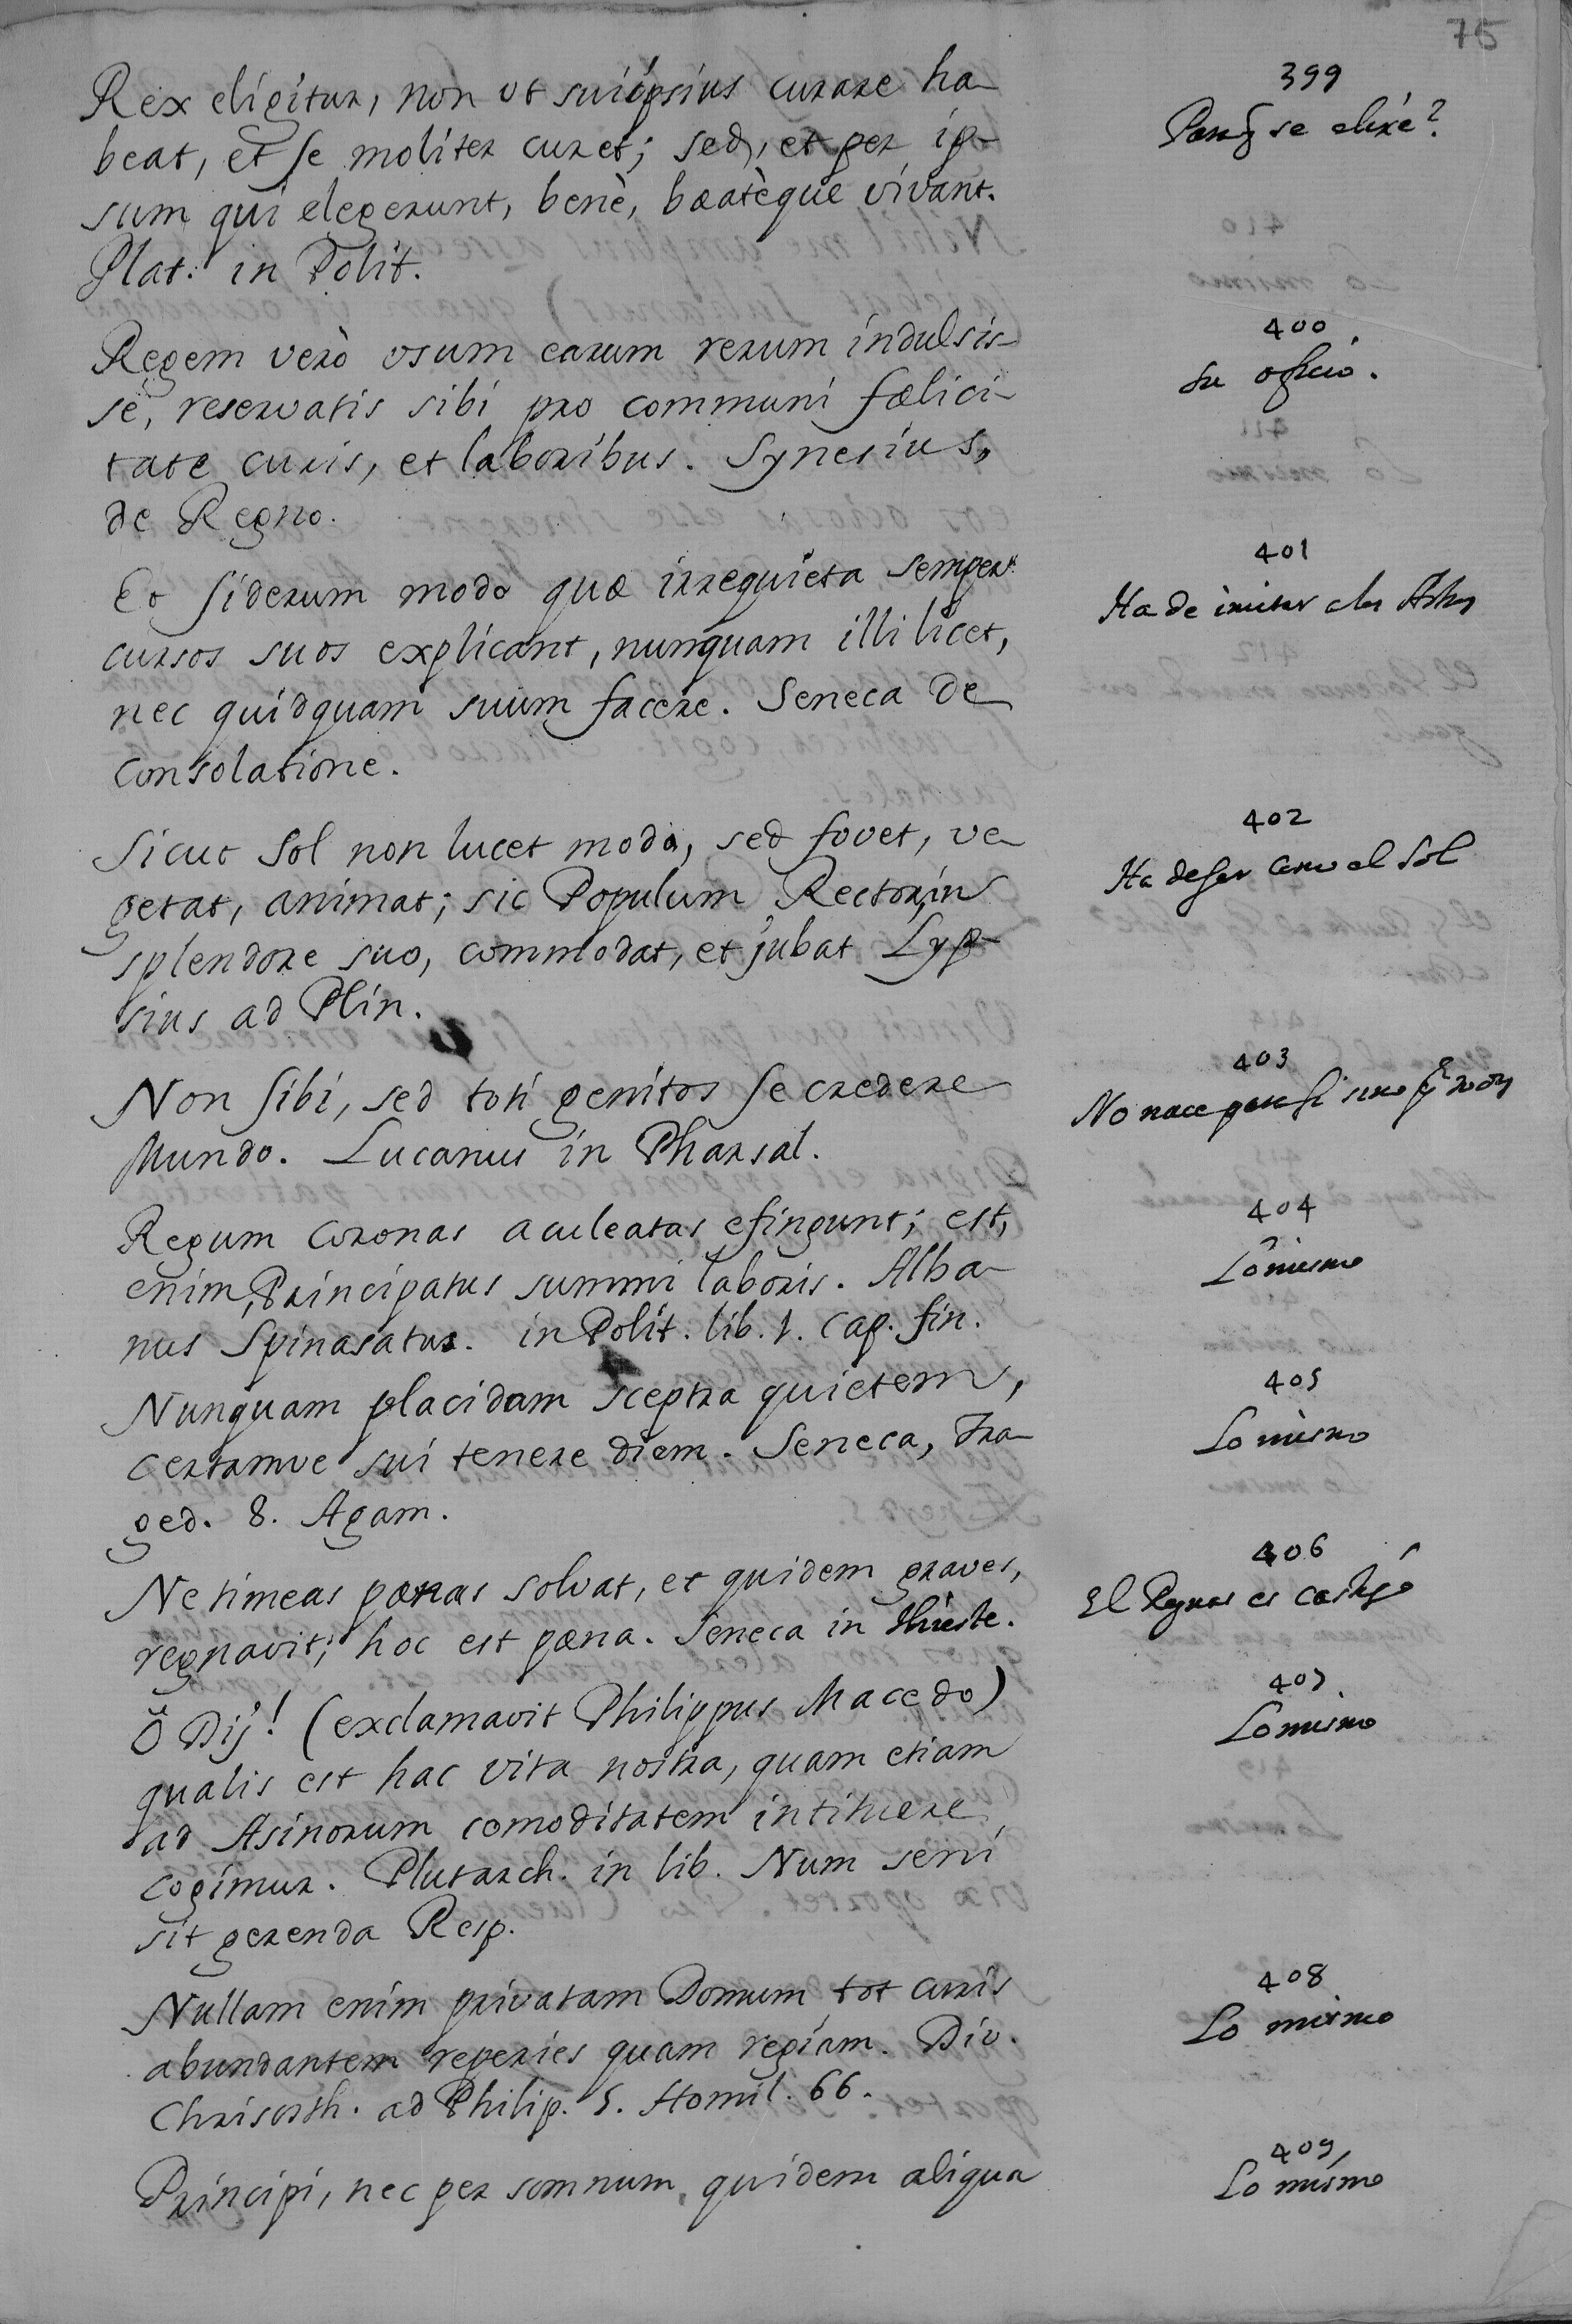 75
399
Paraq̃ se elixe?
Rex eligitur, non ut suiipsius curare ha-
beat, et se moliter curet; sed, et per ip-
sum qui elegerunt, benè, bæatèque vivant.
Plat. in Polit.
400
su oficio.
Regem verò usum earum rerum indulsis-
se, reservatis sibi pro communi fælici-
tate curis, et laboribus. Synesius,
de Regno.
401
Ha de imitar a los Astros
Eo siderum modo quæ irrequieta semper
cursos suos explicant, nunquam illi licet,
nec quidquam suum facere. Seneca de
Consolatione.
402
Ha de ser como el Sol
Sicut Sol non lucet modo, sed fovet, ve-
getat, animat; sic Populum Rector, in
splendore suo, commodat, et jubat Lyp-
sius ad Plin.
403
No nace para si sino
Non sibi, sed toti genitos se credere
Mundo. Lucanus in Pharsal.
404
Lo mismo
Regum Coronas aculeatas efingunt; est,
enim, Principatus summi laboris. Alba-
nus Spinasatus. in Polit. lib. 1. cap. fin.
405
Lo mismo
Nunquam placidam sceptra quietem,
certamve sui tenere diem. Seneca, Tra-
ged. 8. Agam.
406
El Reynar es castigo
Ne timeas pænas solvat, et quidem graves,
regnavit; hoc est pæna. Seneca in thieste.
407
Lo mismo
O Dij! (exclamavit Philippus Macedo)
qualis est hac vita nostra, quam etiam
ad Asinorum comoditatem intituere
cogimur. Plutarch. in lib. Num seni
sit gerenda Resp.
408
Lo mismo
Nullam enim privatam Domum tot curis
abundantem reperies quam regiam. Div.
Chrisosth. ad Philip. 5. Homil. 66.
409
Lo mismo
Principi, nec per somnum, quidem aliqua